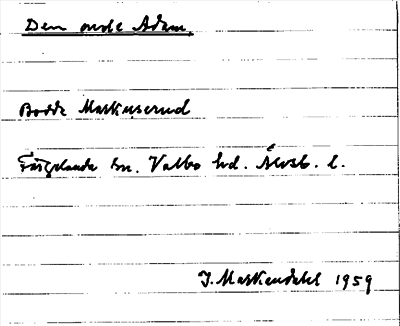 Den onde Adam.
Bodde Markuserud
Färgelanda sn. Valbo hd. Älvsb. l.
J. Markendahl 1959